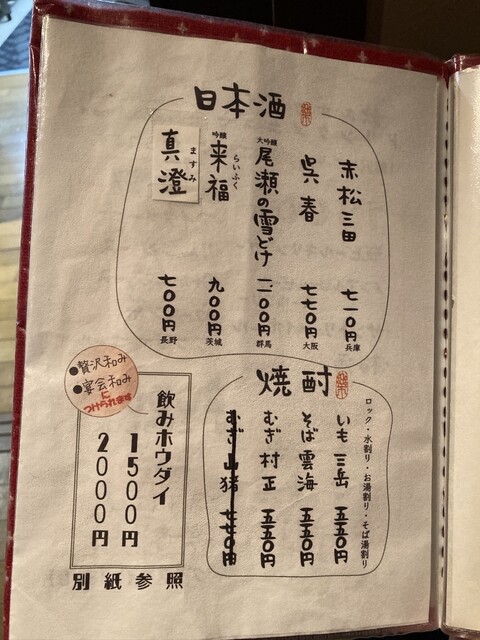 日本酒
赤松三田 七一〇円 兵庫
呉春 七七〇円 大阪
大吟醸 尾瀬の雪どけ 一二〇〇円 群馬
吟醸 来福 らいふく 九〇〇円 茨城
真澄 ますみ 七〇〇円 長野
焼酎
ロック・水割り・お湯割り・そば湯割り
いも 三岳 五五〇円
そば 雲海 五五〇円
むぎ 村正 五五〇円
むぎ 山猪 七七〇円
●贅沢和み
●宴会和み
に
つけられます
飲みホウダイ
1500円
2000円
別紙参照